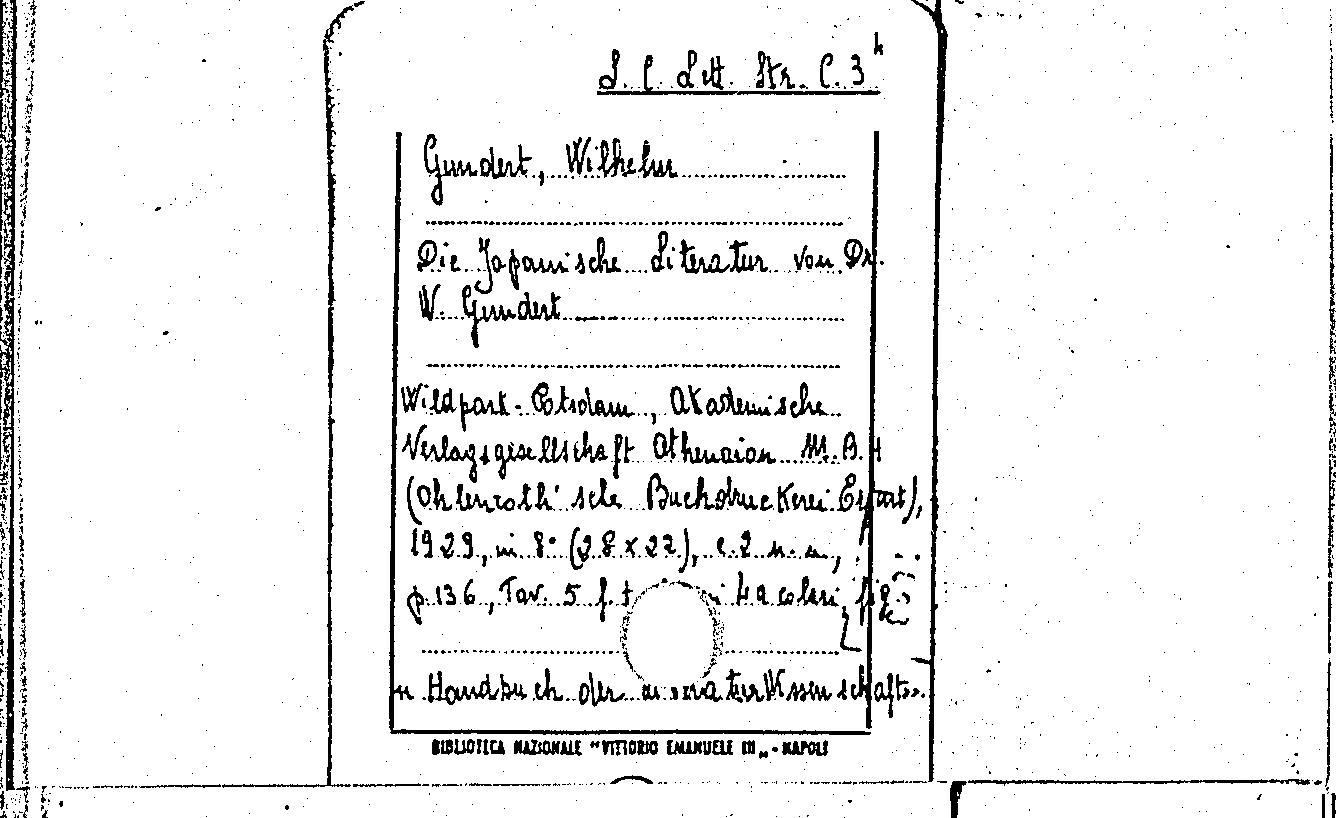 L. C. Lett. Str. C. 3 h
Gundert, Wilhelm
Die Japanische Literatur von Dr.
W. Gundert
Wildpark-Potsdam, Akademische
Verlagsgesellschaft Athenaion M.B.H
(Ohlenroth'sche Buchdruckerei Erfurt),
1929, in 8° (28 x 22), c. 2 n. n.,
p. 136, Tav. 5 f. t 4 a colori, fig.
« Handbuch der Wissenschaft».
BIBLIOTECA NAZIONALE "VITTORIO EMANUELE III„ - NAPOLI